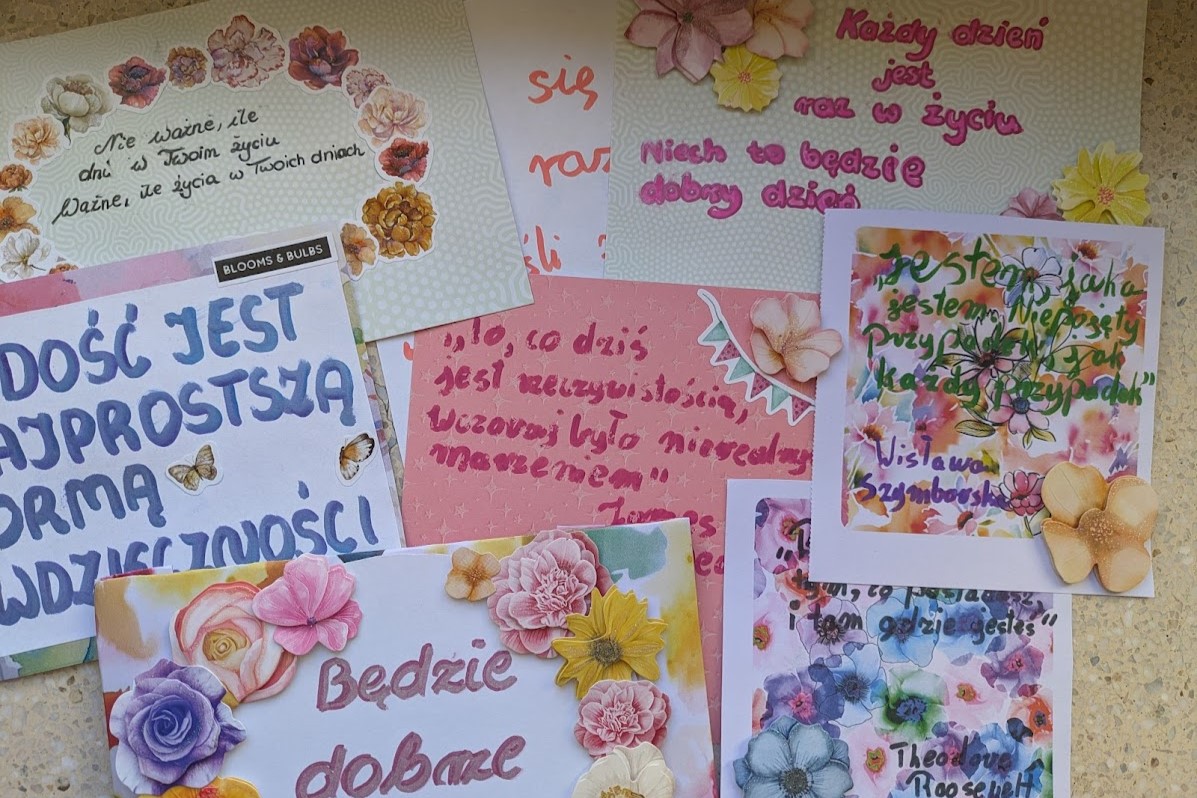 Nie ważne, ile
dni w Twoim życiu
Ważne, ile życia w Twoich dniach
się
raz
śli
Każdy dzień
jest
raz w życiu
Niech to będzie
dobry dzień
BLOOMS & BULBS
DOŚĆ JEST
AJPROSTSZĄ
ORMĄ
WDZIĘCZNOŚCI
"To, co dziś
jest rzeczywistością,
wczoraj było nierealnym
marzeniem"
James
"Jestem, jaka
jestem. Niepojęty
Przypadek, jak
każdy przypadek"
Wisława
Szymborska
tym, co posiadasz,
i tam gdzie jesteś"
Theodore
Roosevelt
Będzie
dobrze